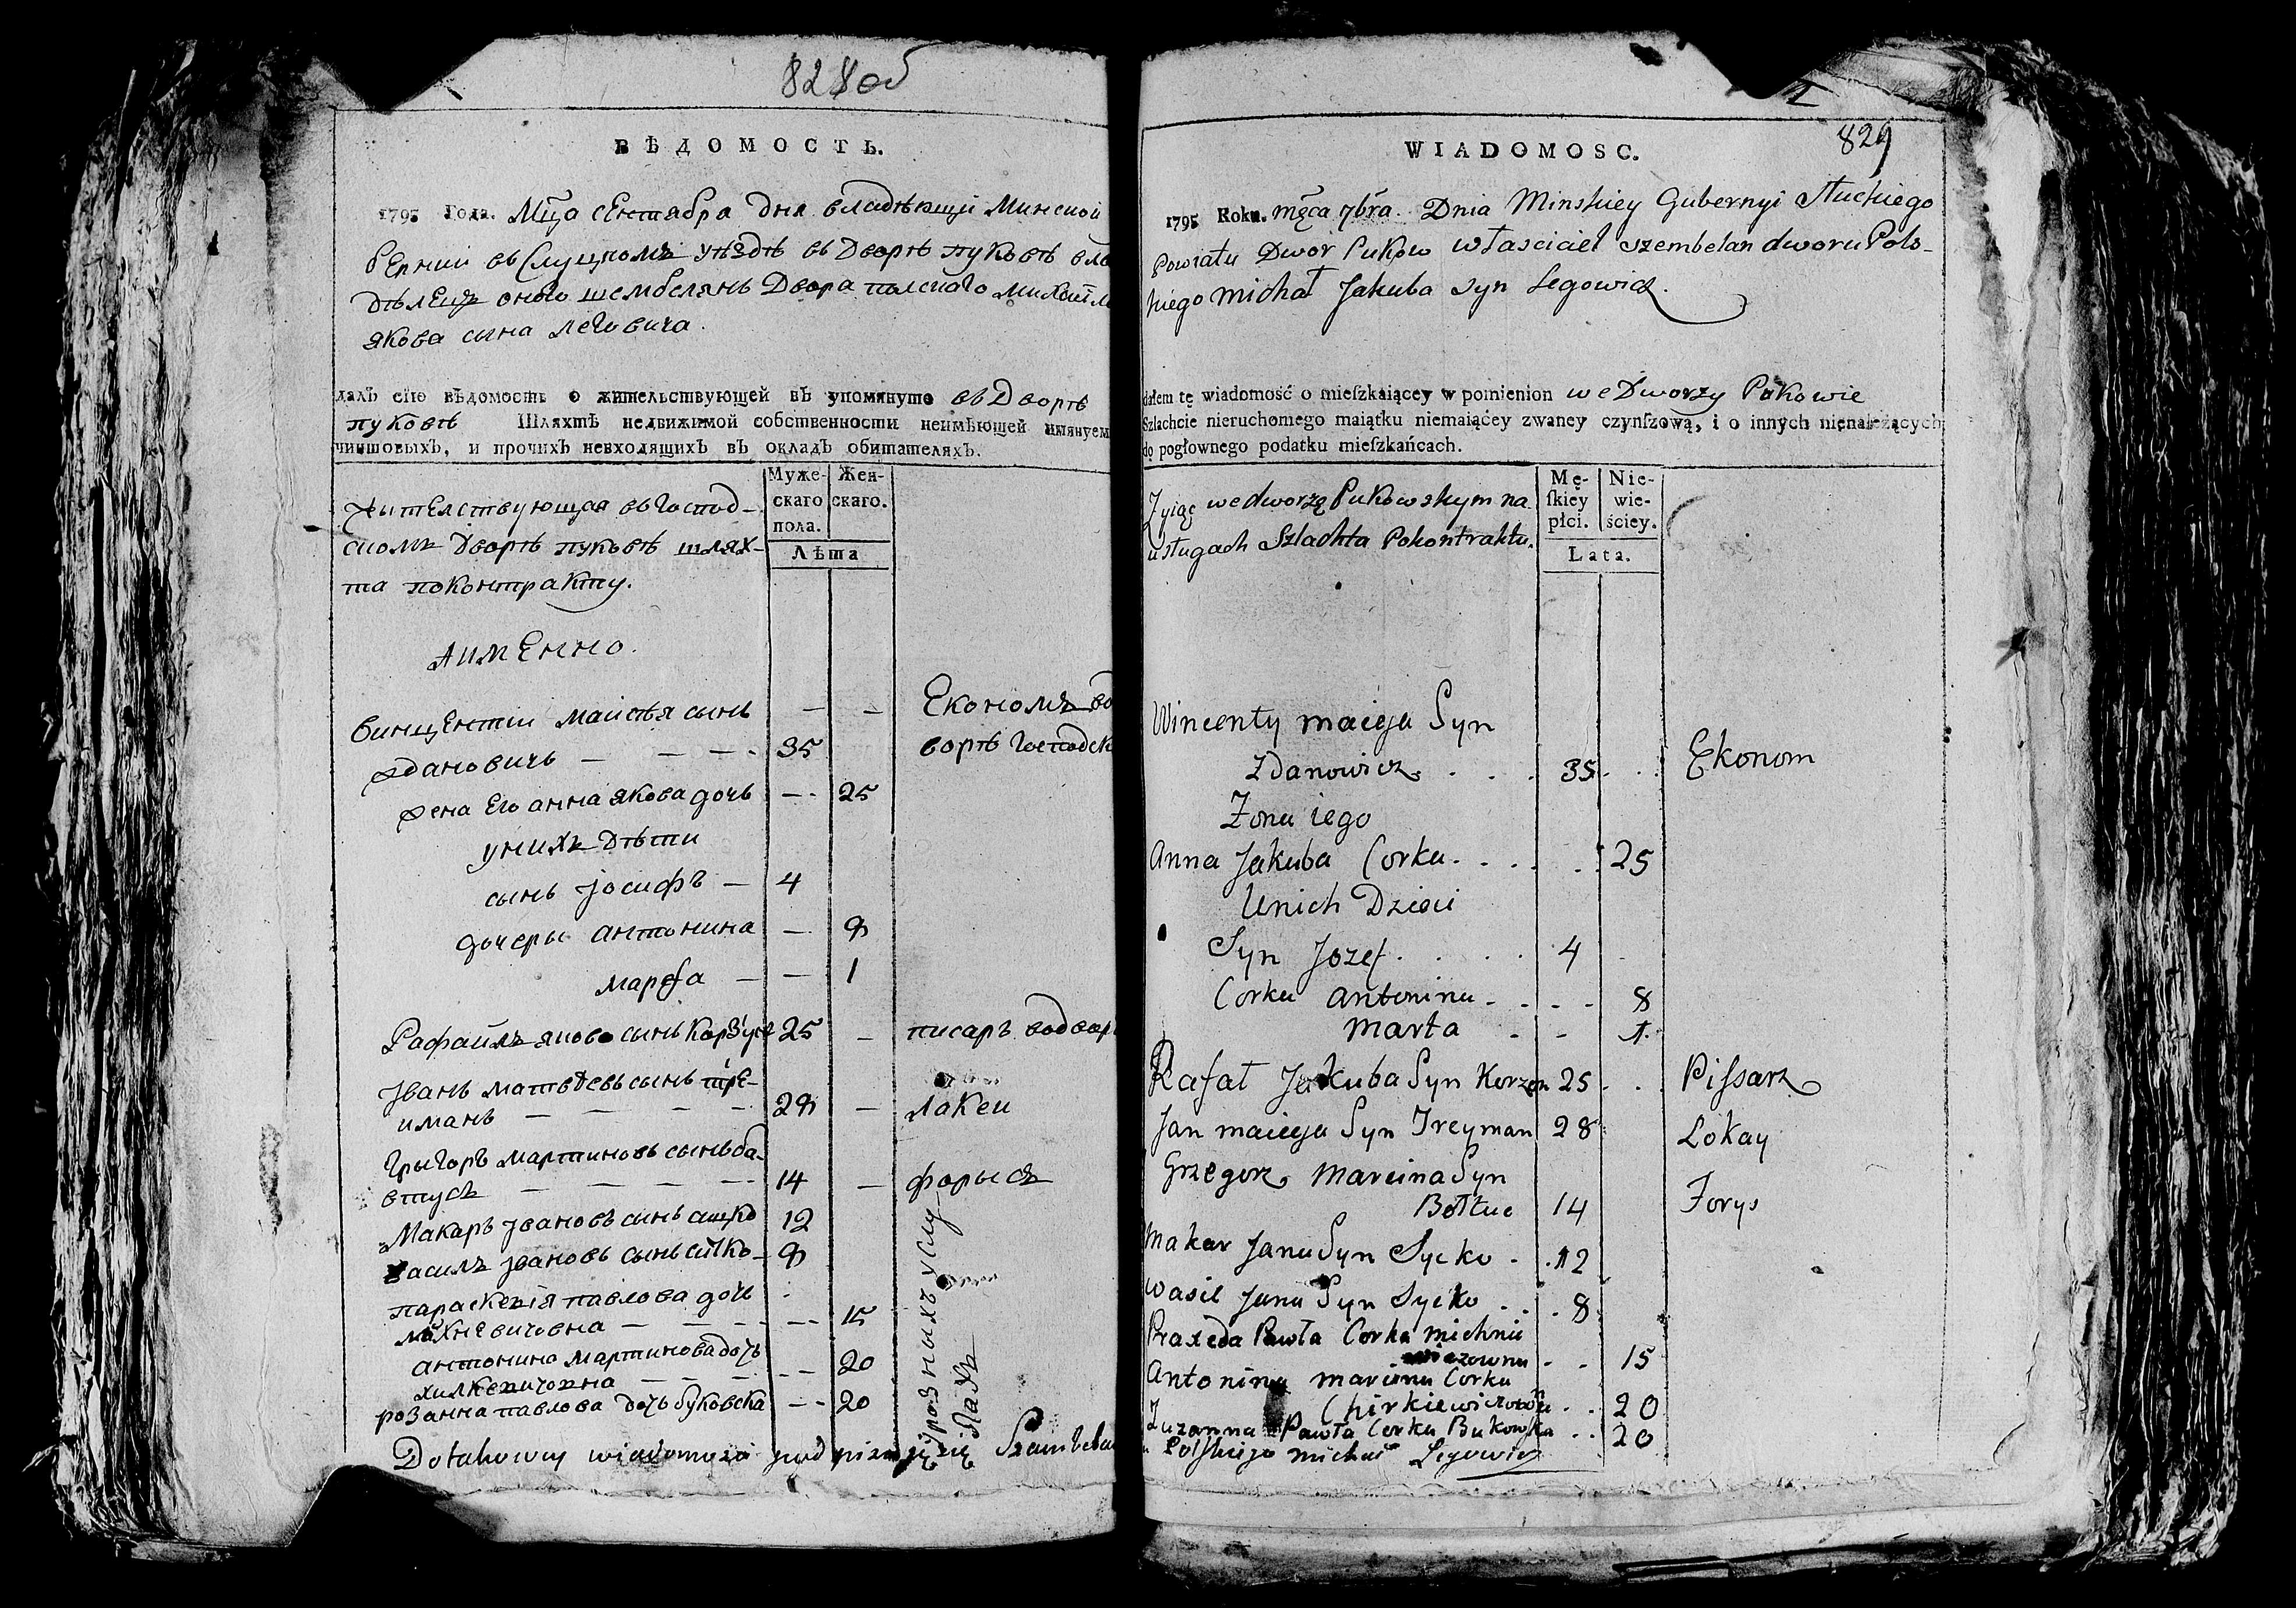 828об
ВѢДОМОСТЬ.
1795 Года. Мца сентября дня владѣющи Минской
берніи въ Слуцкомъ уѣздѣ въ Дворѣ пуковѣ вла
дѣлецъ оного шембелянъ Двора полскаго михаил
якова сына леговича.
далъ сїю вѣдомость о жительствующей въ упомянуто въ Дворѣ
пуковѣ Шляхтѣ недвижимой собственности неимѣющей имянуем
чиншовыхъ, и прочихъ невходящихъ въ окладъ обитателяхъ.
Муже- Жен-
скаго скаго.
пола.
Лѣта
жителствующая въ господ-
скомъ дворѣ пуковѣ шлях-
та поконтракту.
Аименно.
винцентіи маиѣя сынъ — — Економъ во
здановичъ — — — 35 ворѣ господск
жена его анна якова дочь — 25
унихъ дѣти
сынъ іосифъ — 4
дочеры антонина — 8
марѳа — — 1
Рафаилъ яково сынъ Корзунъ 25 — писаръ водвор
Іванъ матвѣевъ сынъ тре-
иманъ — — — — 28 — лакеи
григоръ мартиновъ сынъ ба-
втусъ — — — — 14 — форысъ
Макаръ Івановъ сынъ сицко 12
василъ Івановъ сынъ сицко — 8
параскевія павлова дочь
михневичовна — — — — 15
антонина мартинова дочь
хилкевичовна — — — — 20
розанна павлова дочь буковска — 20
уразныхъ услу
гахъ
Dotakowey wiadomosci podpisuję się Szambelan
I
829
WIADOMOSC.
1795 Roku. mçca 7bra. Dnia Minskiey Gubernyi Słuckiego
Powiatu Dwor Pukow własciciel szembelan dworu Pols-
kiego michał Jakuba syn Legowicz.
dałem tę wiadomość o mieſzkaiącey w pomienion we Dworzy Pukowie
Szlachcie nieruchomego maiątku niemaiącey zwaney czynſzową, i o innych nienależących
do pogłownego podatku mieſzkańcach.
Mę- Nie-
ſkiey wie-
płci. ściey.
Lata.
Zyiąc we dworzę Pukowskym na
usługach Szlachta Pokontraktu.
Wincenty macieja Syn
Zdanowicz . . . 35 . . Ekonom
Zona iego
Anna Jakuba Corka . . . . . 25
Unich Dzieci
Syn Jozef . . . . 4
Corka antonina - - - - 8
Marta - - 1.
Rafał Jakuba Syn Korzon 25 . . Piſsarz
Jan macieja Syn Treyman 28 Lokay
Grzegorz Marcina Syn
Bołtuc 14 Forys
Makar Jana Syn Sycko . . 12
Wasil Jana Syn Sycko . . . 8
Praxeda Pawła Corka michnie
wiczowna - - 15
Antonina marcina Corka
Chirkiewiczowna . . 20
Zuzanna Pawła Corka Bukowska . . 20
Polſkiego michał Legowicz